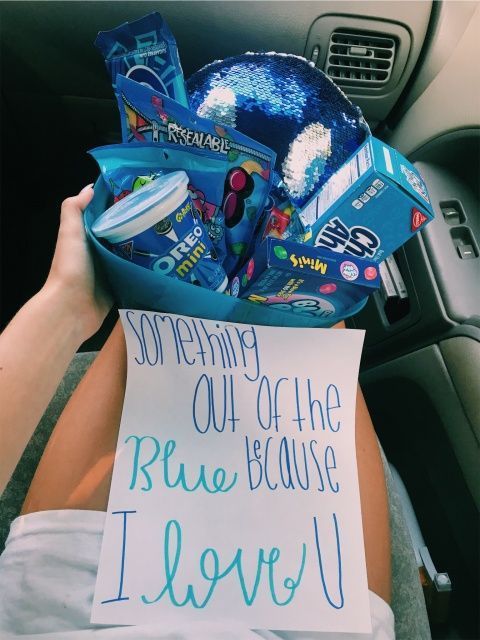 RESEALABLE
GO-Paks!
OREO
mini
Minis
Ch
Ah
Something
out of the
Blue because
I love U